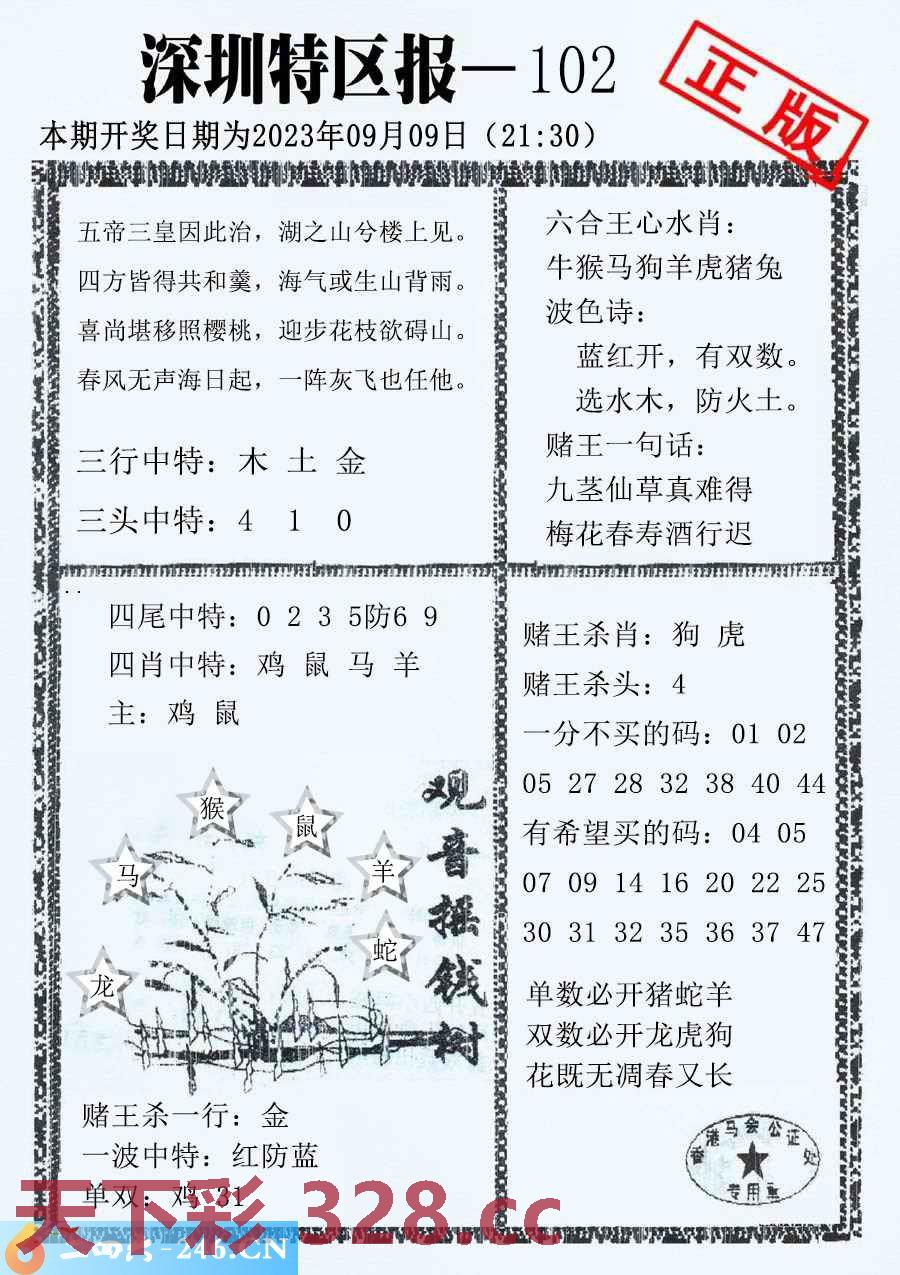 深圳特区报—102
正版
本期开奖日期为2023年09月09日（21:30）
五帝三皇因此治，湖之山兮楼上见。
四方皆得共和羹，海气或生山背雨。
喜尚堪移照樱桃，迎步花枝欲碍山。
春风无声海日起，一阵灰飞也任他。
三行中特：木 土 金
三头中特：4 1 0
六合王心水肖：
牛猴马狗羊虎猪兔
波色诗：
蓝红开，有双数。
选水木，防火土。
赌王一句话：
九茎仙草真难得
梅花春寿酒行迟
四尾中特：0 2 3 5防6 9
四肖中特：鸡 鼠 马 羊
主：鸡 鼠
观音摇钱树
猴
鼠
马
羊
蛇
龙
赌王杀一行：金
一波中特：红防蓝
单双：鸡 31
赌王杀肖：狗 虎
赌王杀头：4
一分不买的码：01 02
05 27 28 32 38 40 44
有希望买的码：04 05
07 09 14 16 20 22 25
30 31 32 35 36 37 47
单数必开猪蛇羊
双数必开龙虎狗
花既无凋春又长
香港马会公证处
专用章
天下彩 328.cc
-246.CN